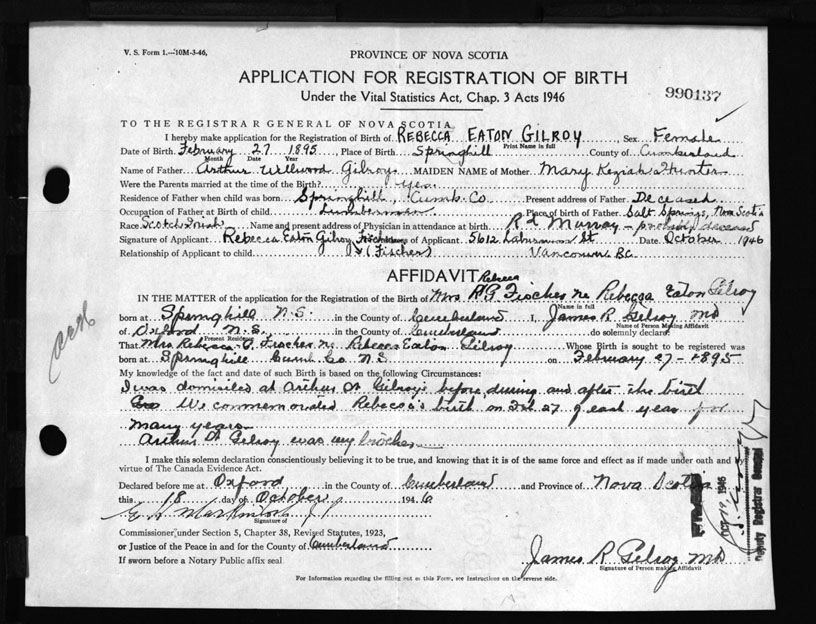 V. S. Form 1.—10M-3-46.
PROVINCE OF NOVA SCOTIA
APPLICATION FOR REGISTRATION OF BIRTH
Under the Vital Statistics Act, Chap. 3 Acts 1946
990137
TO THE REGISTRAR GENERAL OF NOVA SCOTIA
I hereby make application for the Registration of Birth of REBECCA EATON GILROY, Sex Female
Print Name in full
Date of Birth February 27 1895 Place of Birth Springhill County of Cumberland
Month Date Year
Name of Father Arthur Gilroy MAIDEN NAME of Mother Mary Keziah Hunter
Were the Parents married at the time of Birth? yes
Residence of Father when child was born Springhill, Cumb. Co Present address of Father Deceased
Occupation of Father at Birth of child Lumberman Place of birth of Father Salt Springs, Nova Scotia
Race Scotch Irish Name and present address of Physician in attendance at birth R L Murray - probably deceased
Signature of Applicant Rebecca Eaton Gilroy Fischer of Applicant 5612 Laburnum St Date October 1946
Relationship of Applicant to child (Fischer) Vancouver BC
AFFIDAVIT
Rebecca
IN THE MATTER of the application for the Registration of the Birth of Mrs R G Fischer ne Rebecca Eaton Gilroy
Name in full
born at Springhill N.S. in the County of Cumberland I, James R. Gilroy MD
Name of Person Making Affidavit
of Oxford N.S. in the County of Cumberland do solemnly declare:
Present Residence
That Mrs Rebecca G. Fischer ne Rebecca Eaton Gilroy Whose Birth is sought to be registered was
born at Springhill Cumb. Co N.S. on February 27 - 1895
My knowledge of the fact and date of such Birth is Based on the following Circumstances:
I was domiciled at Arthur W Gilroy's before, during and after the birth
We commemorated Rebecca's birth on Feb 27 of each year for
many years
Arthur W Gilroy was my brother
I make this solemn declaration conscientiously believing it to be true, and knowing that it is of the same force and effect as if made under oath and by
virtue of The Canada Evidence Act.
Declared before me at Oxford in the County of Cumberland and Province of Nova Scotia
this 18 day of October 1946
Signature of
Commissioner under Section 5, Chapter 38, Revised Statutes, 1923,
or Justice of the Peace in and for the County of Cumberland
If sworn before a Notary Public affix seal
James R Gilroy MD
Signature of Person making Affidavit
For Information regarding the filling out of this Form, see Instructions on the reverse side.
1946
Deputy Registrar General